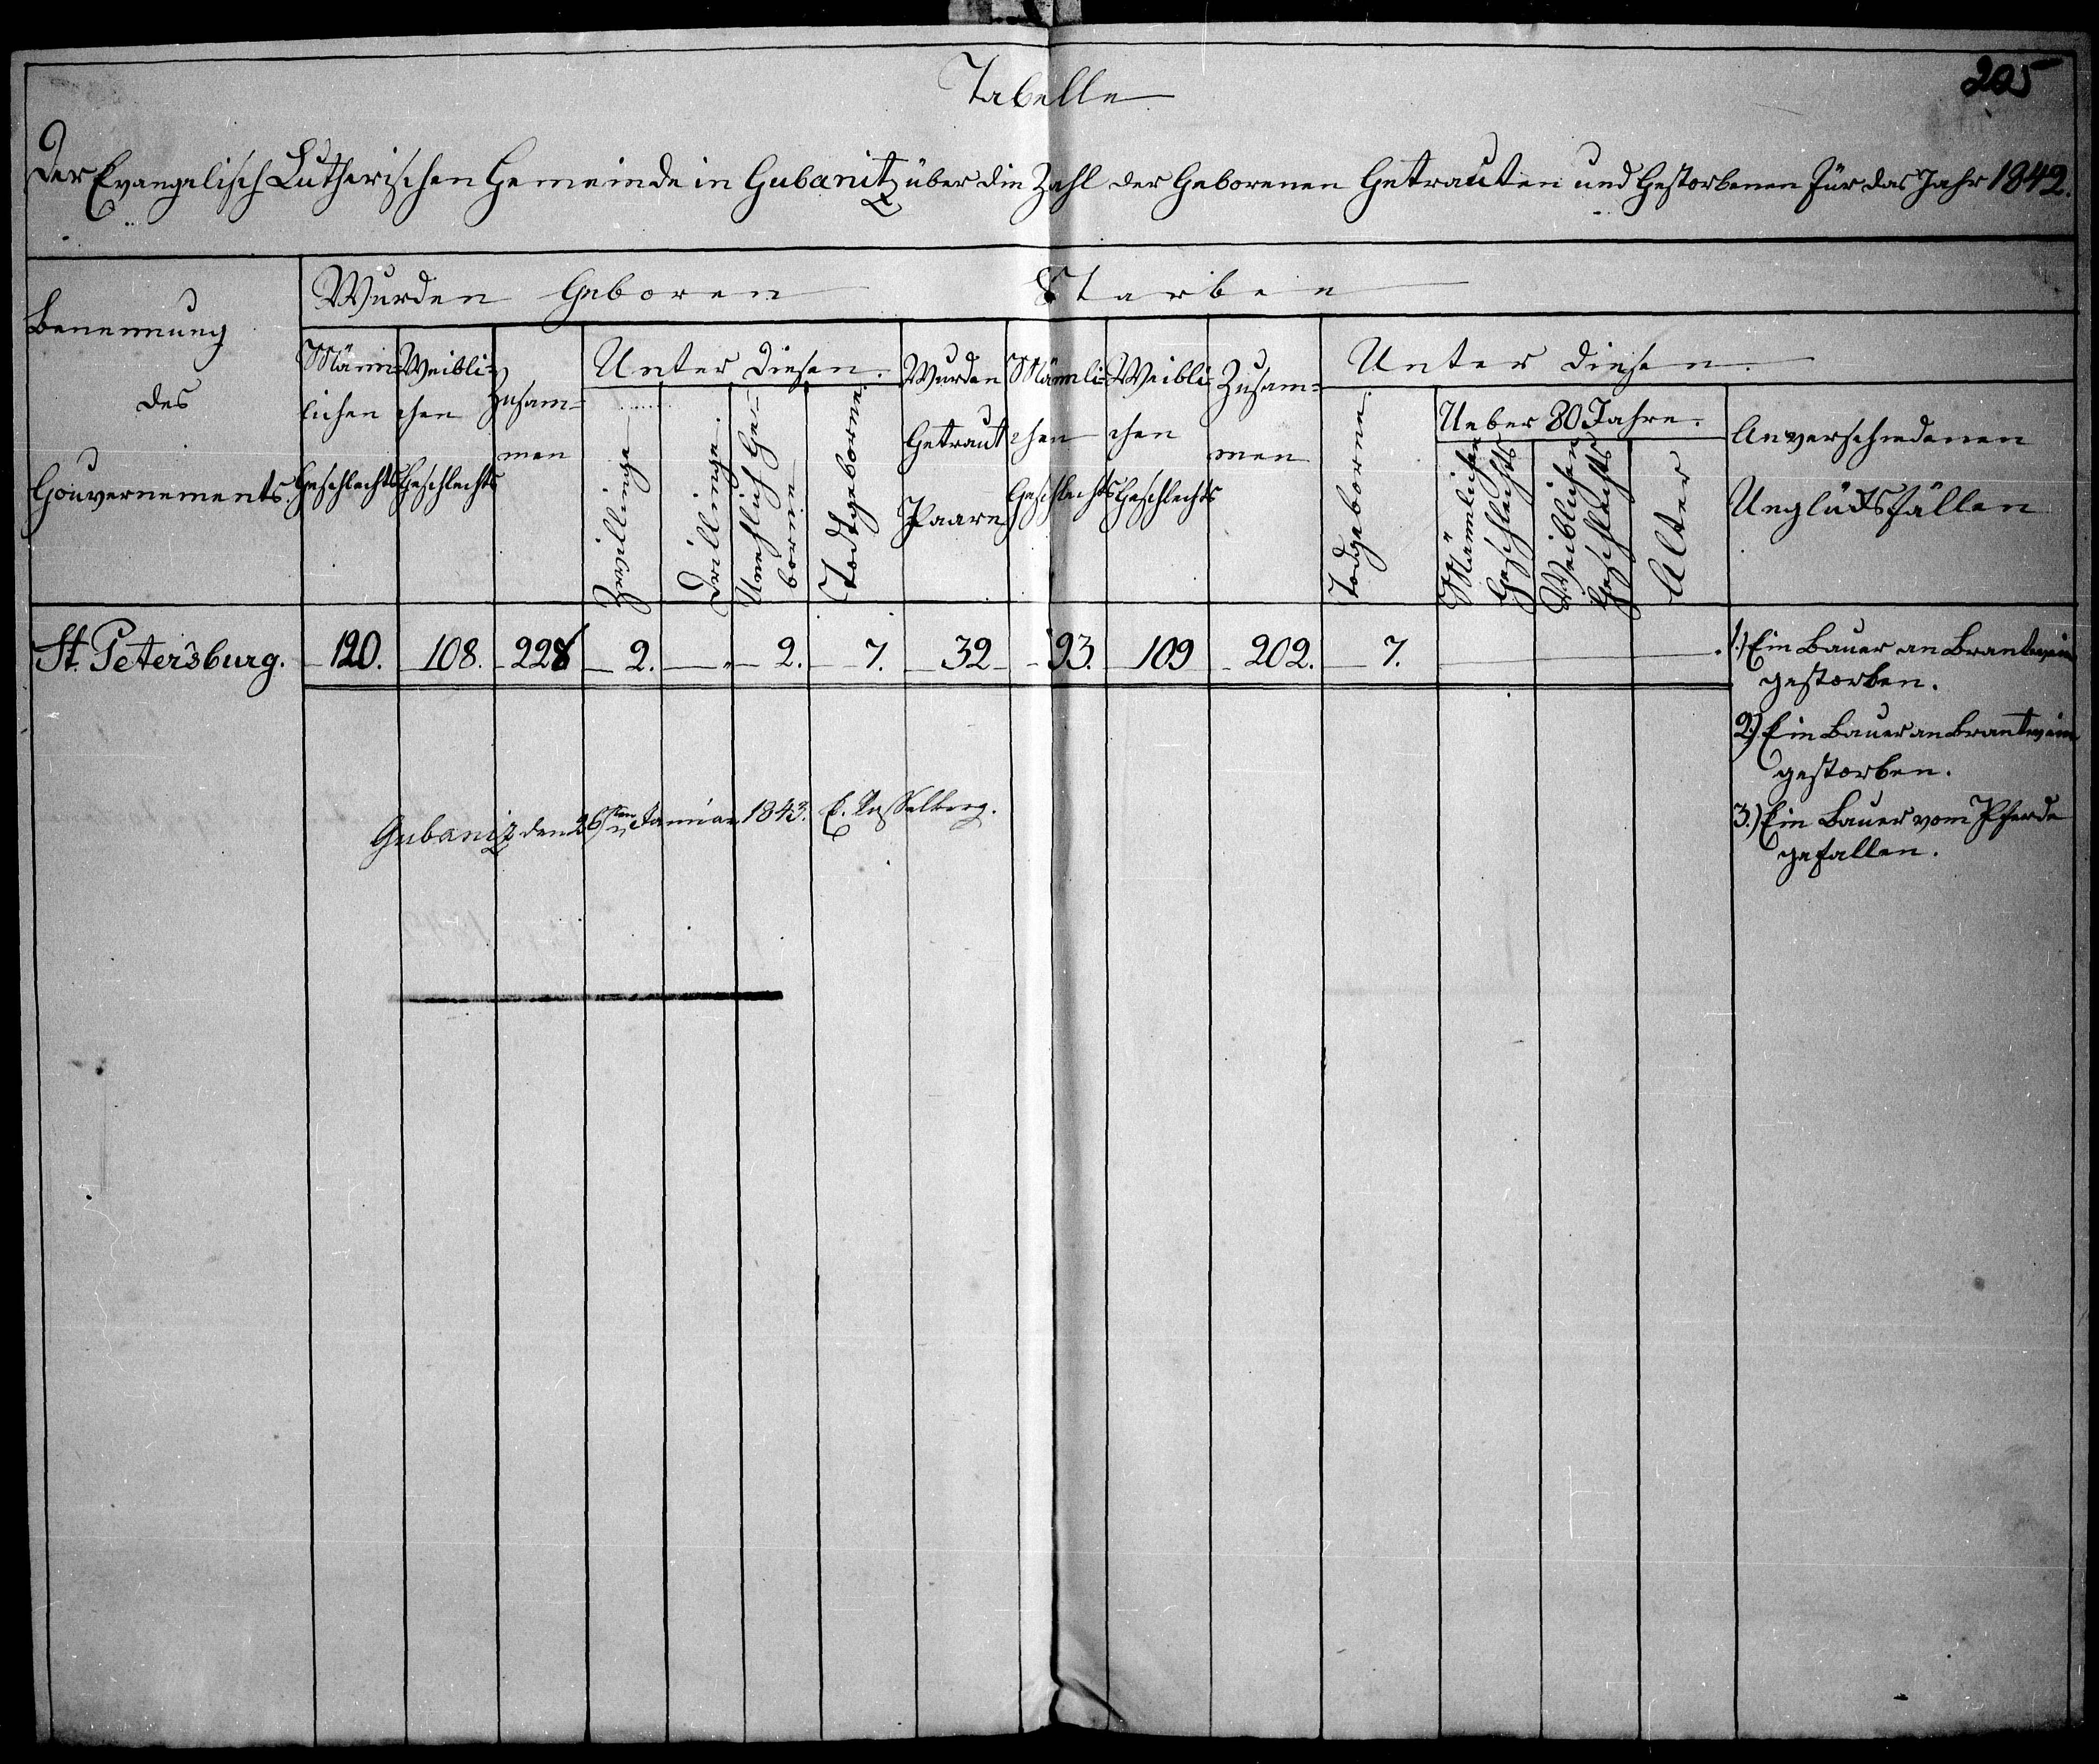 205
Tabelle
Der Evangelisch Lutherischen Gemeinde in Gubanitz über die Zahl der Geborenen Getrauten und Gestorbenen für das Jahr 1842.
Benennung
des
Gouvernements.
Wurden Geboren
Männ=
lichen
Geschlechts
Weibli=
chen
Geschlechts
Zusam=
men
Unter diesen.
Zwillinge
Drillinge.
Unehlich Ge=
borne
Todtgeborne.
Wurden
Getraut
Paare
Starben
Männli=
chen
Geschlechts
Weibli=
chen
Geschlechts
Zusam=
men
Unter diesen.
Todgeborne.
Ueber 80 Jahre.
Männlichen
Geschlechts
Weiblichen
Geschlechts
Alter
An verschiedenen
Unglücksfällen
St. Petersburg. 120. 108. 228 2. — 2. 7. 32 93. 109 202. 7. —
1.) Ein Bauer an Brantwein
gestorben.
2.) Ein Bauer an Brantwein
gestorben.
3.) Ein Bauer vom Pferde
gefallen.
Gubaniz den 26sten Januar 1843.